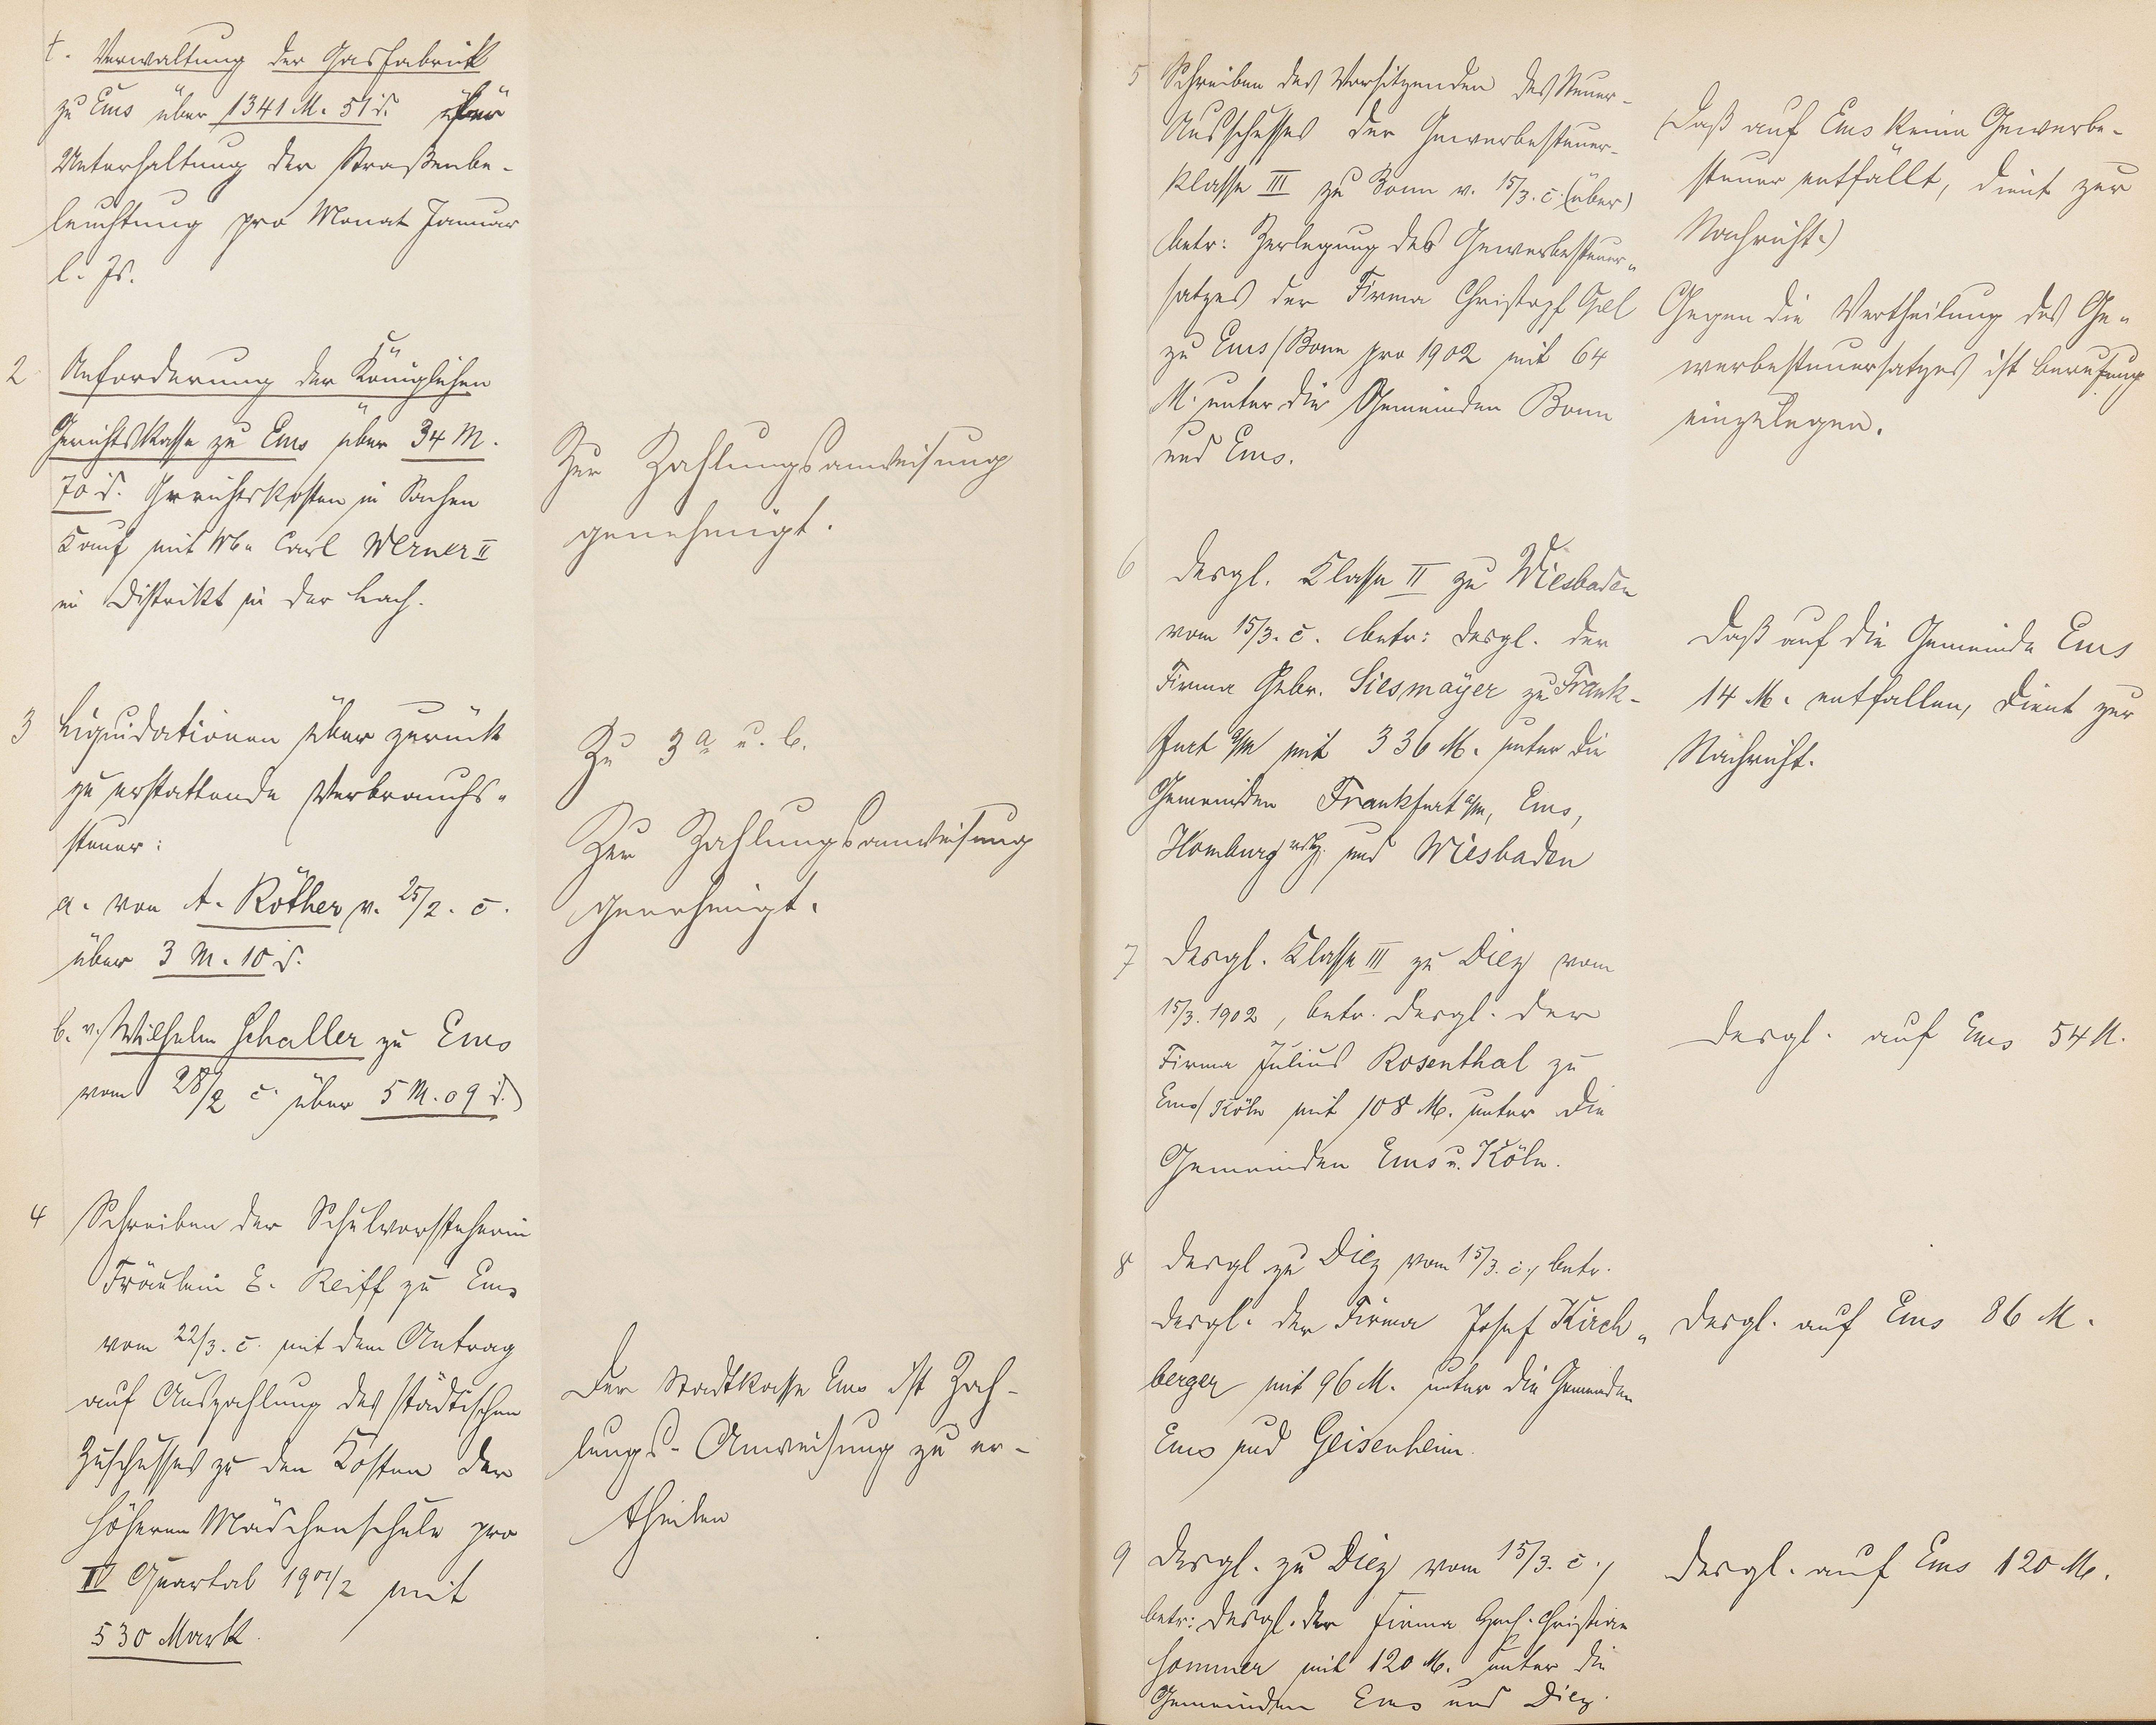 t. Verwaltung der Gasfabrik
zu Ems über 1341 M. 51 d. über
Unterhaltung der Straßenbe-
leuchtung pro Monat Januar
l. Js.
2 Anforderung der Königlichen
Gerichtskasse zu Ems über 34 M.
70 d. Gerichtskosten in Sachen
Kauf mit Carl Werner II
im Distrikt in der Lach.
Zur Zahlungsanweisung
genehmigt.
3 Liquidationen über zurück
zu erstattende Verbrauchs-
steuer:
a. von A. Röther v. 25/2. c.
über 3 M. 10 d.
b. v. Wilhelm Schaller zu Ems
vom 28/2 c. über 5 M. 09 d.
Zu 3 a u. b.
Zur Zahlungsanweisung
genehmigt.
4 Schreiben der Schulvorsteherin
Fräulein E. Reiff zu Ems
vom 22/3. c. mit dem Antrag
auf Auszahlung des städtischen
Zuschusses zu den Kosten der
höheren Mädchenschule pro
IV Quartal 1901/2 mit
530 Mark.
Der Stadtkasse Ems ist Zah-
lungs-Anweisung zu er-
theilen
5 Schreiben des Vorsitzenden des Steuer-
Ausschusses der Gewerbesteuer-
klasse III zu Bonn v. 15/3. c. (über)
betr: Zerlegung des Gewerbesteuer-
satzes der Firma Christoph Opel
zu Ems/Bonn pro 1902 mit 64
M. unter die Gemeinden Bonn
und Ems.
(Daß auf Ems keine Gewerbe-
steuer entfällt, dient zur
Nachricht.)
Gegen die Vertheilung des Ge-
werbesteuersatzes ist Berufung
einzulegen.
6 Desgl. Klasse II zu Wiesbaden
vom 15/3. c. betr: desgl. der
Firma Gebr. Siesmayer zu Frank-
furt a/M mit 336 M. unter die
Gemeinden Frankfurt a/M, Ems,
Homburg v.d.H. und Wiesbaden
Daß auf die Gemeinde Ems
14 M. entfallen, dient zur
Nachricht.
7 Desgl. Klasse III zu Diez vom
15/3. 1902, betr. desgl. der
Firma Julius Rosenthal zu
Ems/Köln mit 108 M. unter die
Gemeinden Ems u. Köln.
Desgl. auf Ems 54 M.
8 Desgl zu Diez vom 15/3. c., betr.
desgl. der Firma Josef Kirch-
berger mit 96 M. unter die Gemeinden
Ems und Geisenheim.
Desgl. auf Ems 86 M.
9 Desgl. zu Diez vom 15/3. c.,
betr: desgl. der Firma Christian
Sommer mit 120 M. unter die
Gemeinden Ems und Diez.
Desgl. auf Ems 120 M.